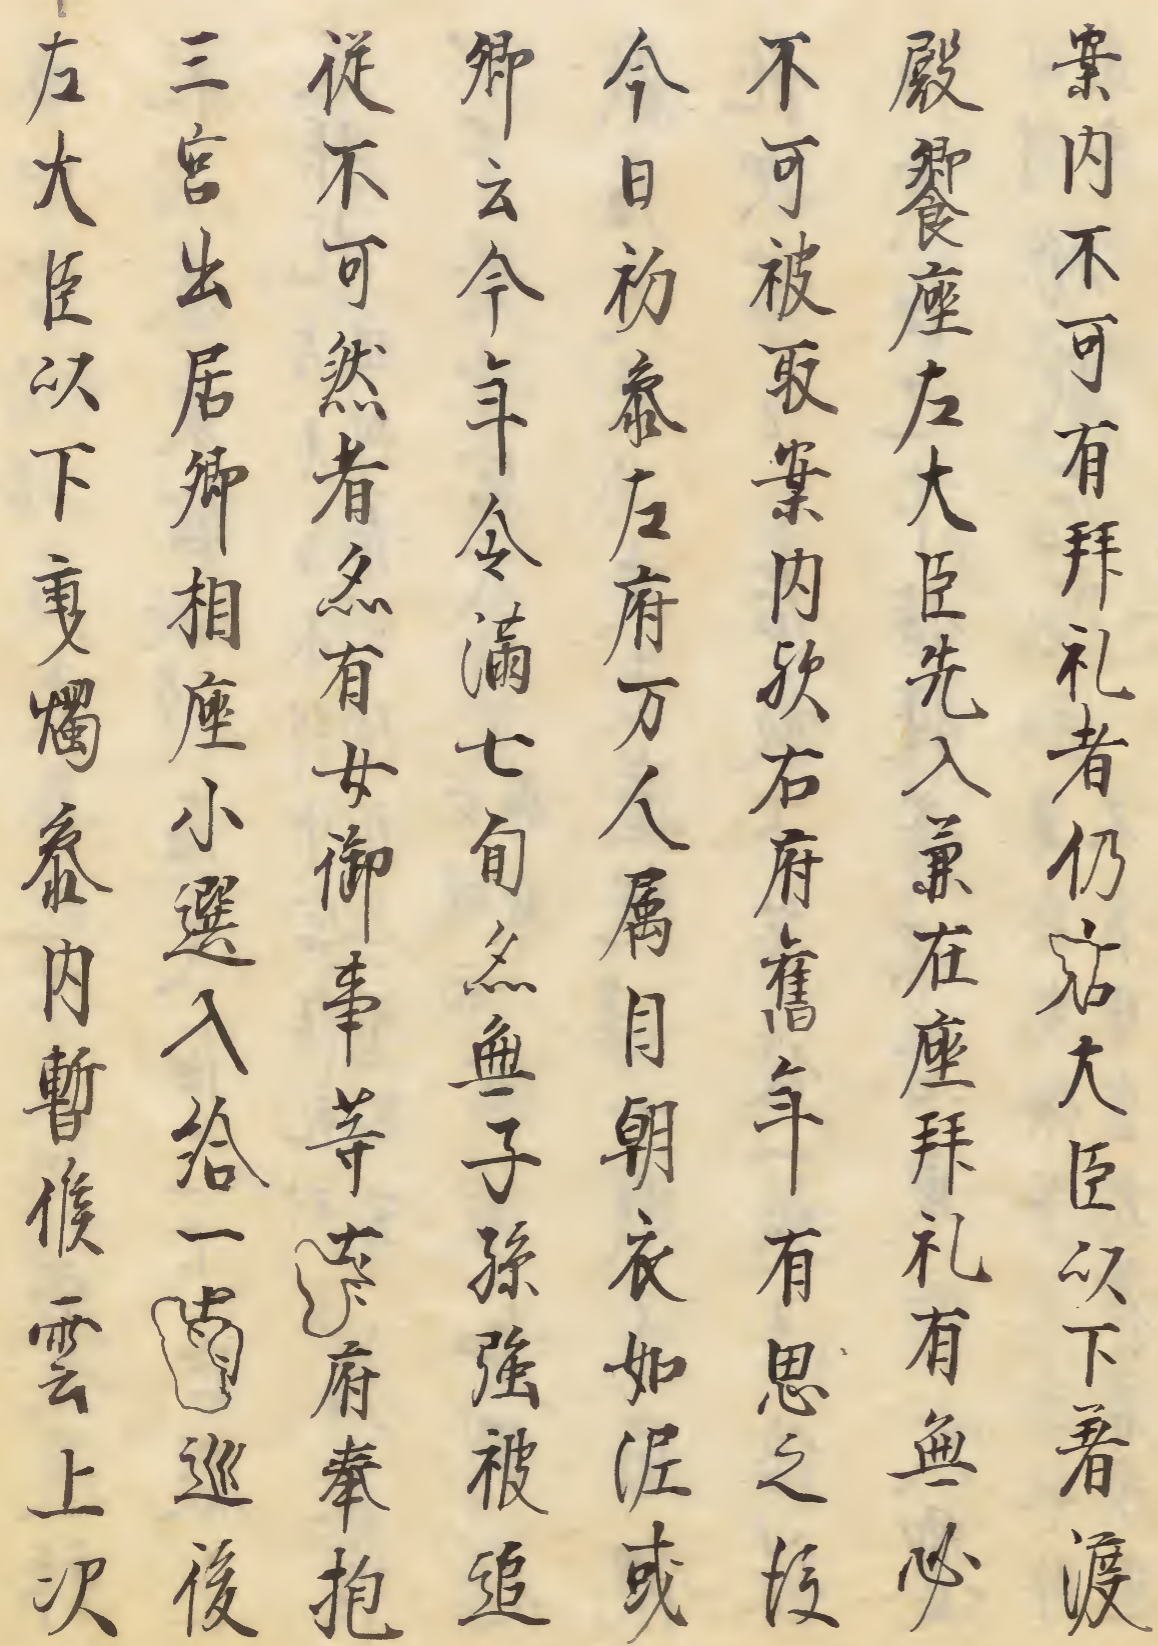 案内不可有拝礼者仍大臣以下著渡
殿饗座左大臣先入兼在座拝礼有無必
不可被取案内欤右府旧年有思之後
今日初参左府万人属目朝衣如泥或
卿云今年令満七旬尓無子孫強被追
従不可然者尓有女御事等府奉抱
三宮出居卿相座小選入給一巡後
左大臣以下乗燭参内暫候雲上次